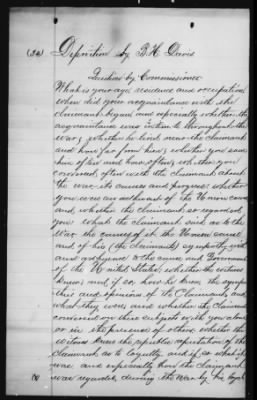 (32) Deposition by B H Davis
Question by Commissioner
What is your age, residence and occupation
when did your acquaintance with the
claimant begin and especially whether the
acquaintance was intimate throughout the
war; whether he lived near the claimant
and how far from him; whether you saw
him often and how often; whether you
conversed often with the claimant about
the war its causes and progress; whether
you were an adherent of the Union cause
and whether the claimant so regarded
you; what the claimant said as to the
war the causes of it the Union cause
and of his (the claimants) sympathy with
and adherence to the cause and Government
of the United States; whether the witness
knew and if so, how he knew the sympa
thies and opinions of the Claimants and
what they were and whether the claimant
conversed on these subjects with you alone
or in the presence of others, whether the
witness knew the public reputation of the
claimant as to loyalty and if so what it
was and especially how the claimant
was regarded during the war by his loyal